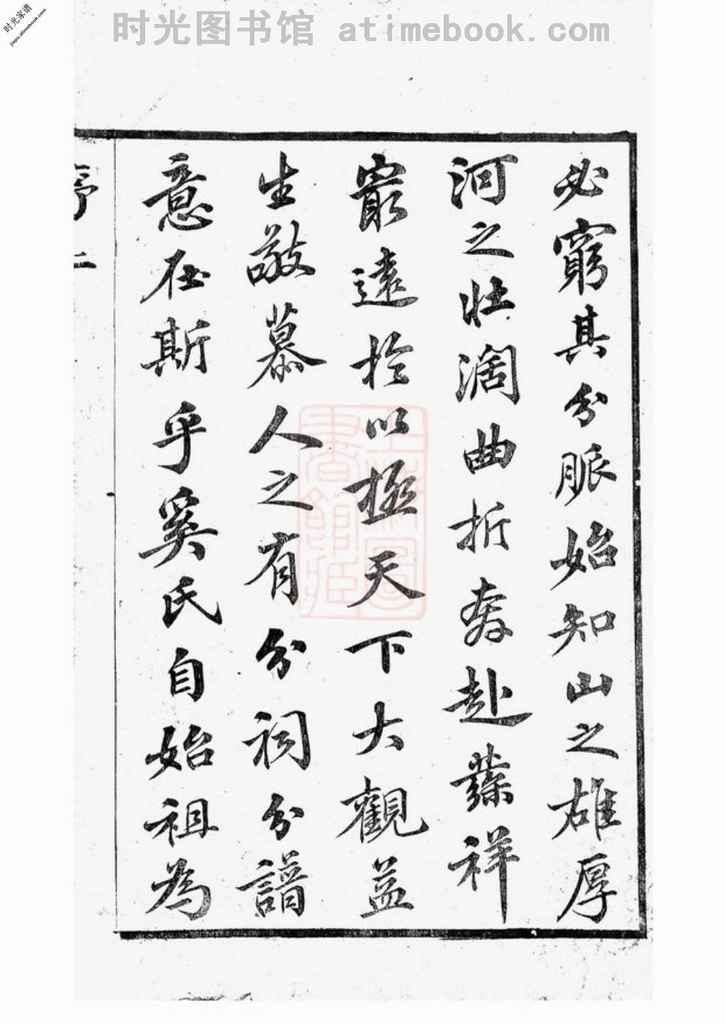 时光图书馆 atimebook.com
时光家谱
必窮其分脈始知山之雄厚
河之壯濶曲折奔赴發祥
窮遠於以極天下大觀益
生敬慕人之有分祠分譜
意在斯乎奚氏自始祖為
序 二